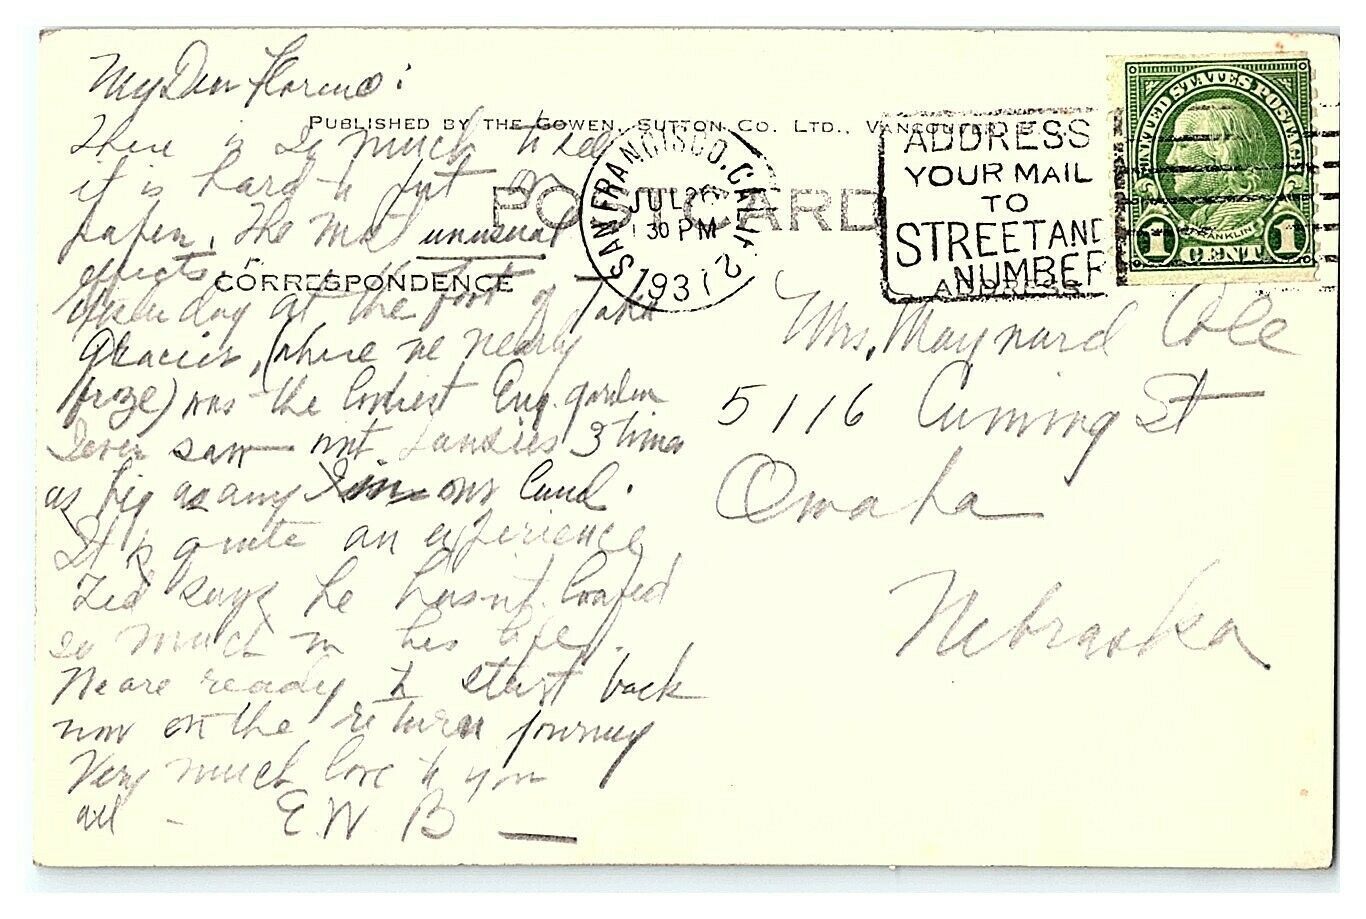 My Dear Florence:
PUBLISHED BY THE GOWEN, SUTTON CO. LTD., VANCOUVER, B.C.
There is so much to tell
it is hard to put on
paper. The most unusual
effects
POST CARD
CORRESPONDENCE
Yesterday at the foot of
Glacier, (where we nearly
froze) was the loveliest Eng. garden
I ever saw with pansies 3 times
as big as any in our land.
It is quite an experience
Ted says he hasn't loafed
so much in his life.
We are ready to start back
now on the return journey
Very much love to you
all - E.W B
SAN FRANCISCO, CALIF.
JUL 26
30 PM
1931
2
ADDRESS
YOUR MAIL
TO
STREET AND
NUMBER
ADDRESS
UNITED STATES POSTAGE
FRANKLIN
1 CENT 1
Mrs. Maynard Cole
5116 Cuming St
Omaha
Nebraska